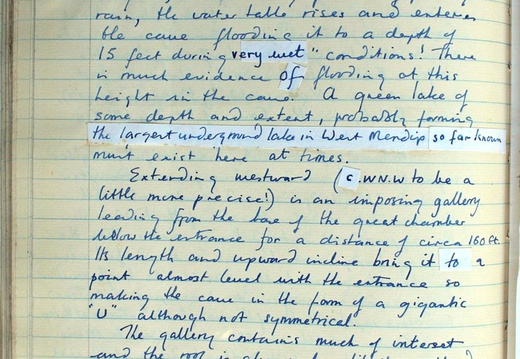 rain, the water table rises and enters
the cave flooding it to a depth of
15 feet during very wet" conditions! There
is much evidence of flooding at this
height in the cave. A green lake of
some depth and extent, probably forming
the largest underground lake in West Mendip so far known
must exist here at times.
Extending westward (c.WN.W to be a
little more precise!) is an imposing gallery
leading from the base of the great chamber
below the entrance for a distance of circa 160 ft.
Its length and upward incline bring it to a
point almost level with the entrance so
making the cave in the form of a gigantic
"U" although not symmetrical.
The gallery contains much of interest
and the roof is